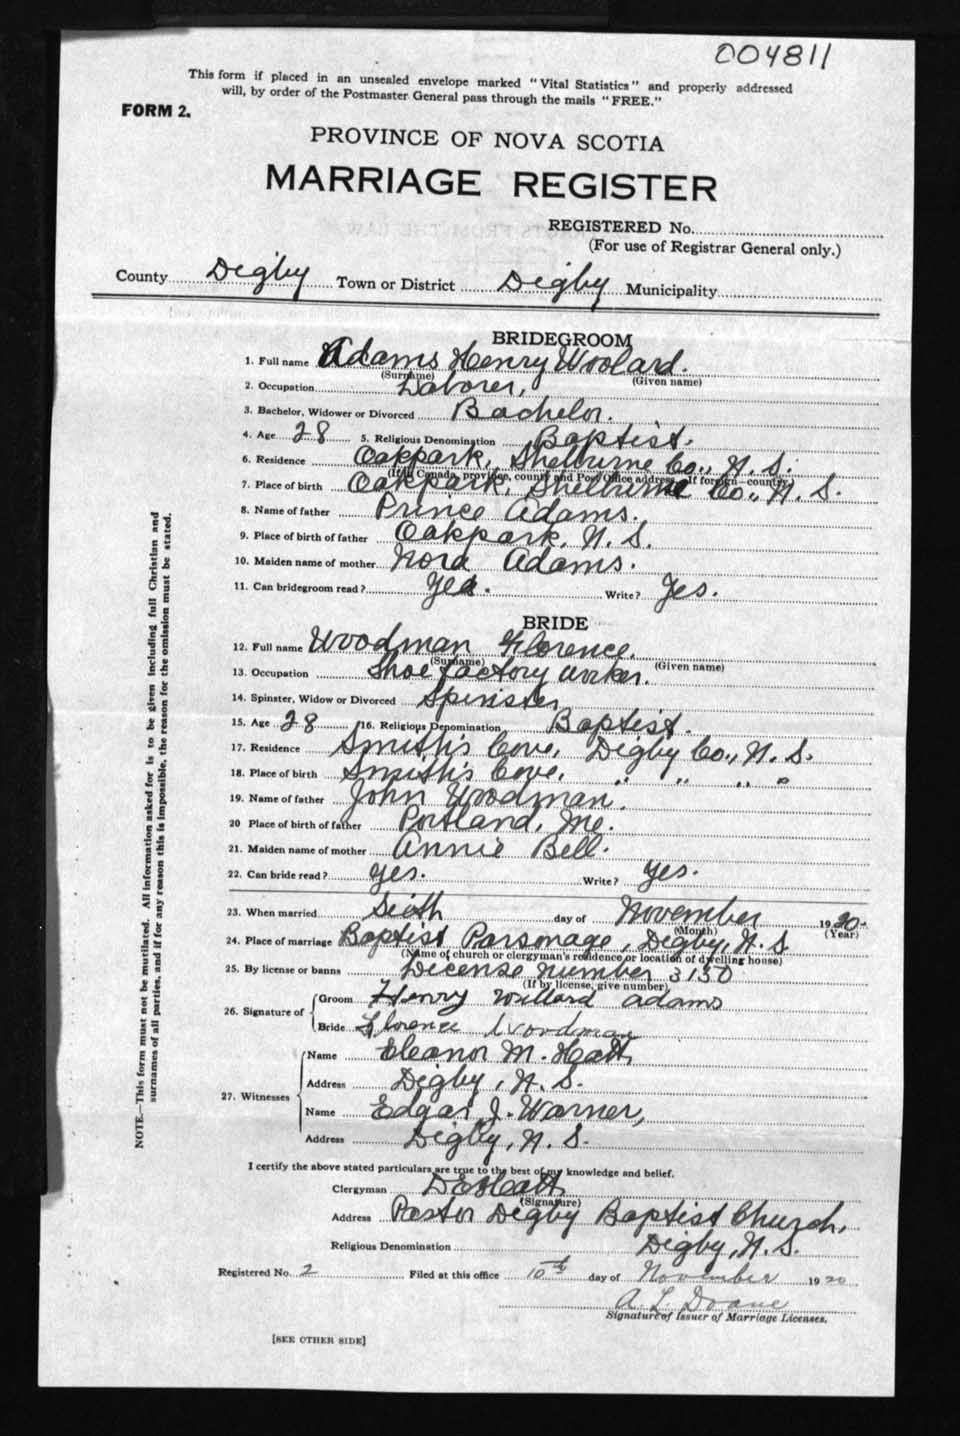 004811
This form if placed in an unsealed envelope marked "Vital Statistics" and properly addressed
will, by order of the Postmaster General pass through the mails "FREE."
FORM 2.
PROVINCE OF NOVA SCOTIA
MARRIAGE REGISTER
REGISTERED No.
(For use of Registrar General only.)
County Digby Town or District Digby Municipality
BRIDEGROOM
1. Full name Adams Henry Woolard.
(Surname) (Given name)
2. Occupation Laborer,
3. Bachelor, Widower or Divorced Bachelor.
4. Age 28 5. Religious Denomination Baptist.
6. Residence Oakpark, Shelburne Co., N. S.
(If in Canada, province, county and Post Office address. If foreign—country)
7. Place of birth Oakpark, Shelburne Co., N. S.
8. Name of father Prince Adams.
9. Place of birth of father Oakpark, N. S.
10. Maiden name of mother Nora Adams.
11. Can bridegroom read? Yes. Write? Yes.
BRIDE
12. Full name Woodman Florence.
(Surname) (Given name)
13. Occupation Shoe factory worker.
14. Spinster, Widow or Divorced Spinster
15. Age 28 16. Religious Denomination Baptist.
17. Residence Smith's Cove, Digby Co., N. S.
18. Place of birth Smith's Cove, " " " "
19. Name of father John Woodman.
20 Place of birth of father Portland, Me.
21. Maiden name of mother Annie Bell.
22. Can bride read? Yes. Write? Yes.
23. When married Sixth day of November 1920.
(Month) (Year)
24. Place of marriage Baptist Parsonage, Digby, N. S
(Name of church or clergyman's residence or location of dwelling house)
25. By license or banns License number 3130
(If by license, give number)
26. Signature of
Groom Henry Willard Adams
Bride Florence Woodman
27. Witnesses
Name Eleanor M. Heatt
Address Digby, N. S.
Name Edgar J. Warner,
Address Digby, N. S.
I certify the above stated particulars are true to the best of my knowledge and belief.
Clergyman
(Signature)
Address Pastor Digby Baptist Church,
Religious Denomination Digby, N. S.
Registered No. 2 Filed at this office 10th day of November 1920
A. L. Doane
Signature of Issuer of Marriage Licenses.
[SEE OTHER SIDE]
NOTE.—This form must not be mutilated. All information asked for is to be given including full Christian and
surnames of all parties, and if for any reason this is impossible, the reason for the omission must be stated.